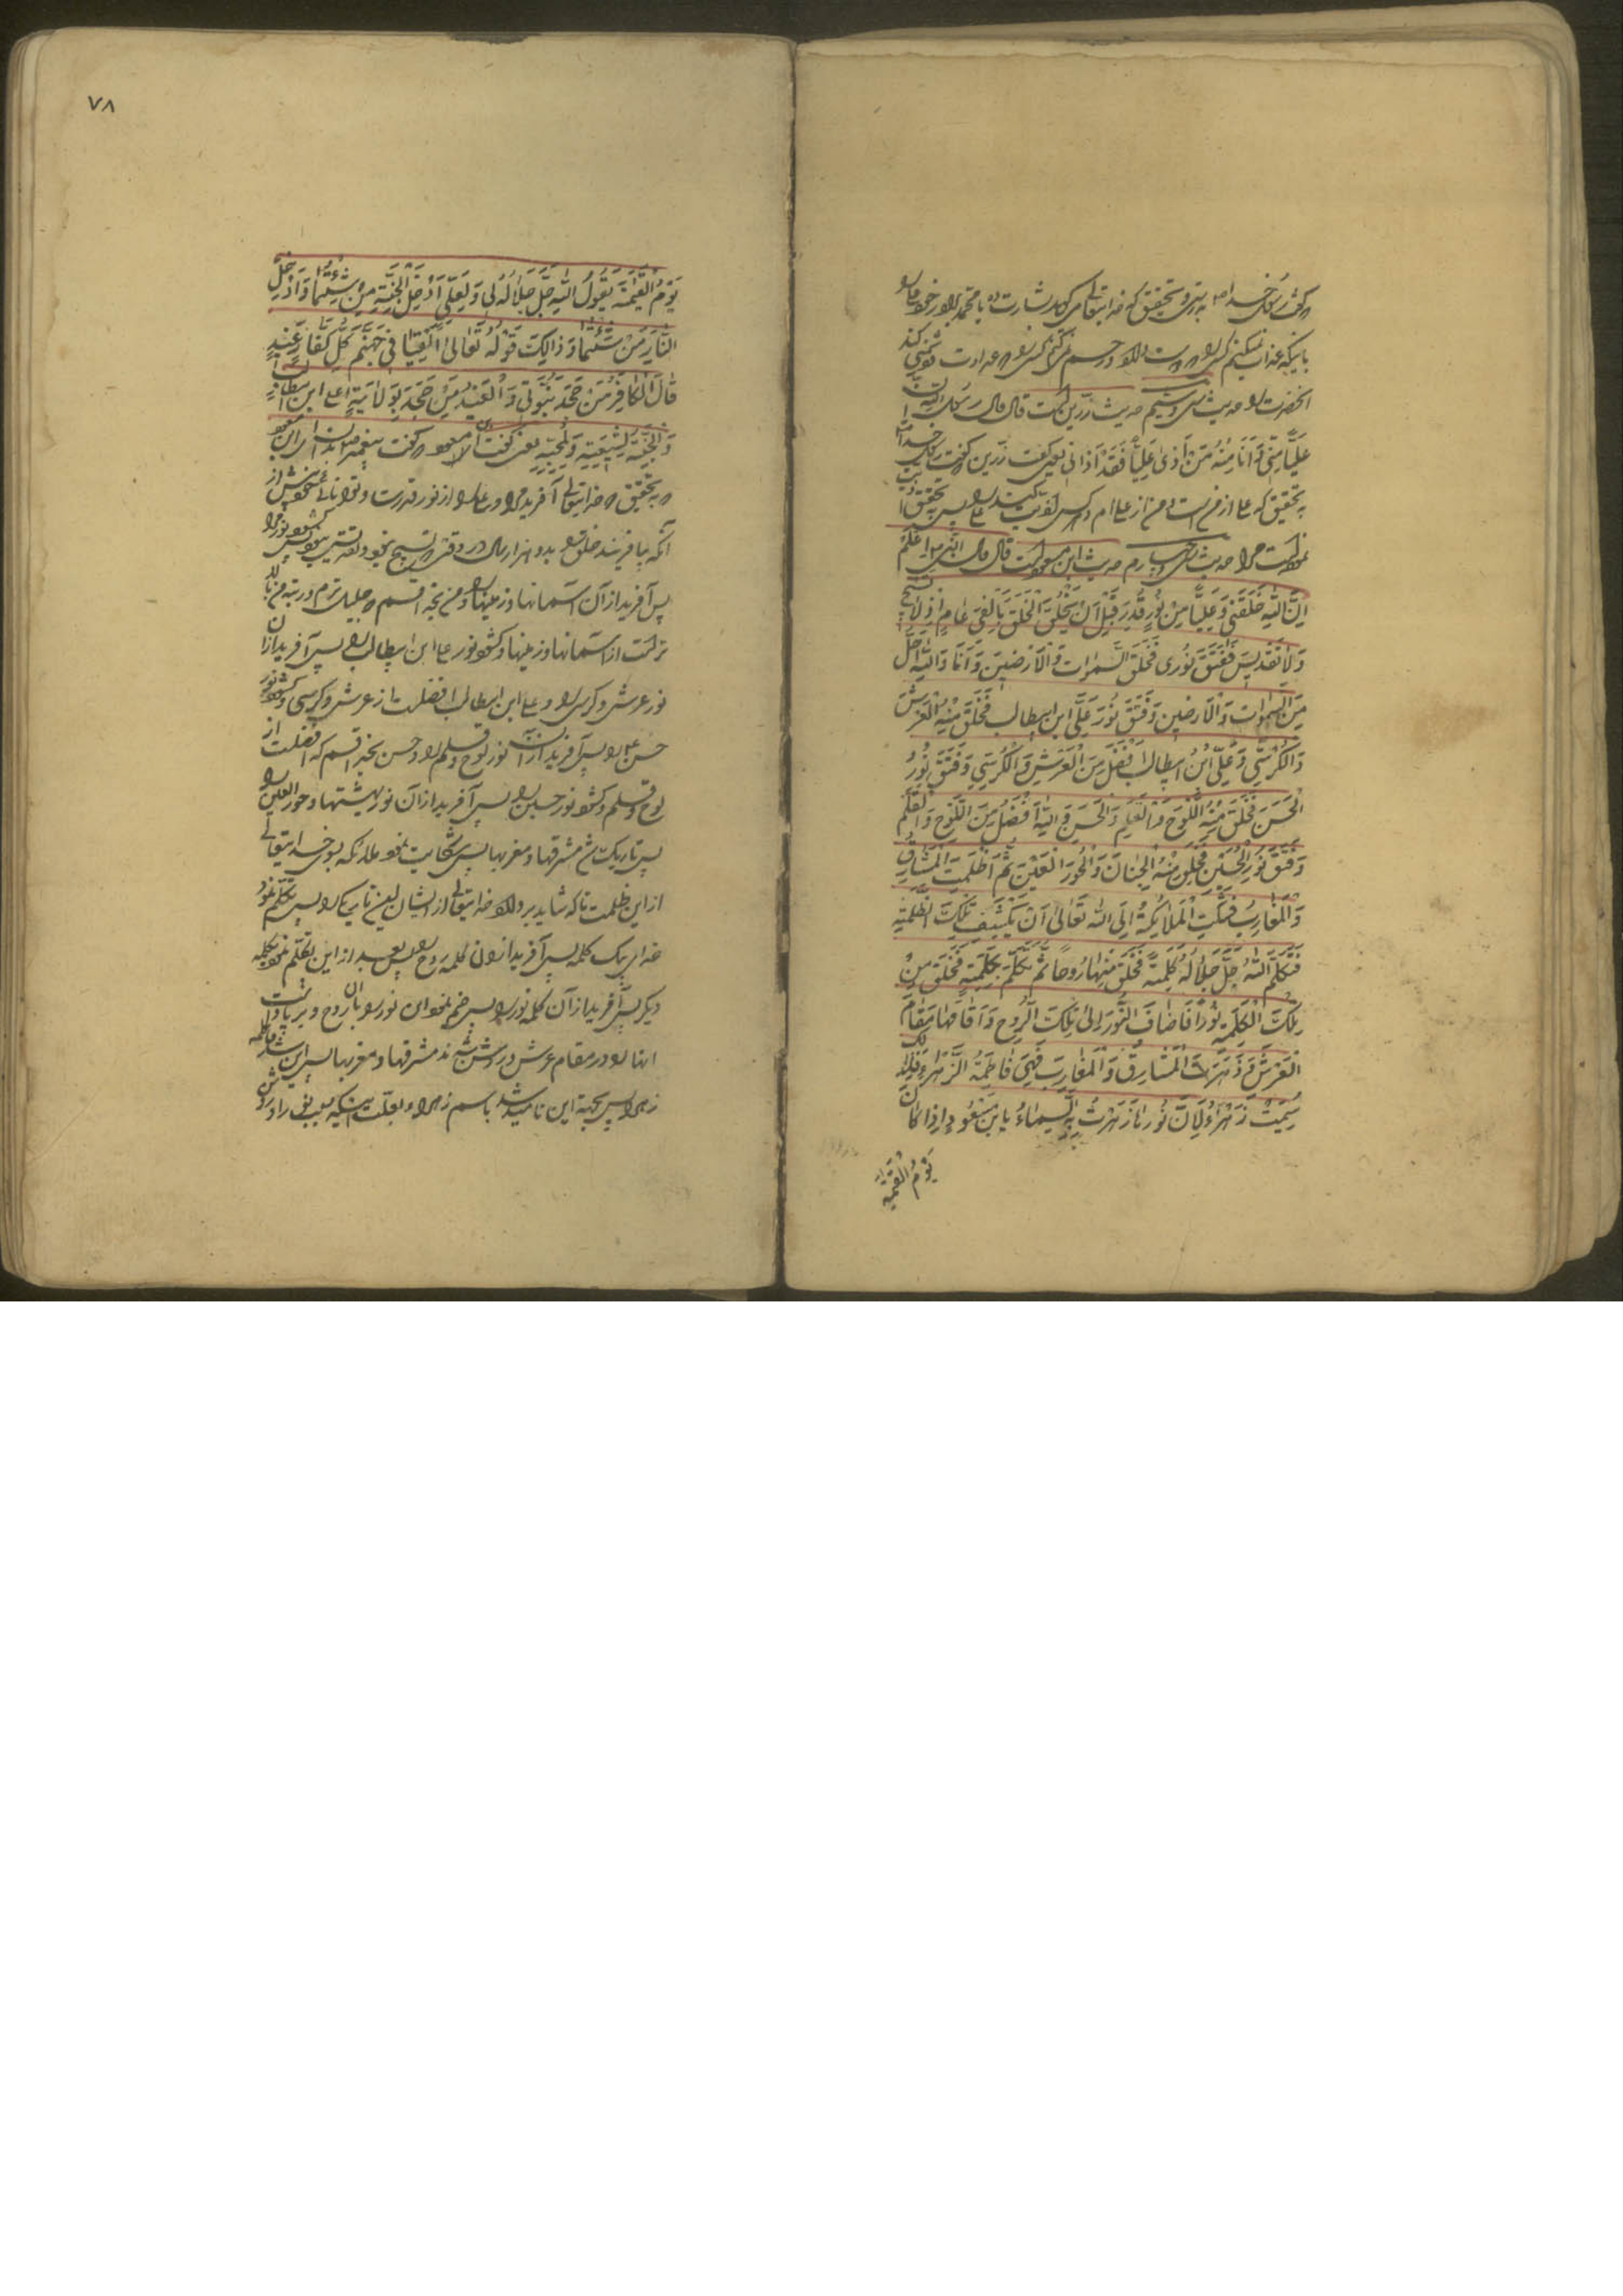 گفت رسول خدا ص به تحقیق که خدایتعالی بشارت یا محمد برادر خود علی را
باینکه عذاب نمیکنم کسی را که دوست و رحم نمیکنم کسی را که عداوت
آنحضرت را حدیث سی و سیم حدیث زرین است قال قال رسول الله ان
عَلِیًّا مِنّی وَاَنَا مِنْهُ مَنْ اَذیٰ عَلِیًّا فَقَدْ اَذانی یعنی گفت زرین که گفت رسول خدا
به تحقیق که علی از من است و من از علی ام و هرکس اذیت علی را پس به تحقیق
مرا حدیث سی و چهارم حدیث ابن مسعود است قال قال النبی اِعْلَمْ
اِنَّ اللهَ خَلَقَنی وَعَلِیًّا مِنْ نُورِ قُدْرَ قَبْلَ اَنْ یَخْلُقَ الْخَلْقَ بِاَلْفَیْ عامٍ اِذْ لا تسبیح
وَلا تَقْدیسَ فَفَتَقَ نُوری فَخَلَقَ السَّمواتِ وَالْاَرَضینَ وَاَنَا وَاللهِ اَجَلُّ
مِنَ السَّمواتِ وَالْاَرَضینَ وَفَتَقَ نُورَ عَلِیِّ ابْنِ ابیطالب فَخَلَقَ مِنْهُ الْعَرْشَ
وَالْکُرْسِیَّ وَعَلِیُّ ابْنُ ابیطالب اَفْضَلُ مِنَ الْعَرْشِ وَالْکُرْسِیِّ وَفَتَقَ نُورُ
الْحَسَنَ فَخَلَقَ مِنْهُ اللَّوْحَ وَالْقَلَمِ وَالْحَسَنُ وَاللهِ اَفْضَلُ مِنَ اللَّوْحِ وَالْقَلَمِ
وَفَتَقَ نُورَ الْحُسَیْنِ فَخَلَقَ مِنْهُ الْجِنانَ وَالْحُورَ الْعَیْنَ ثُمَّ اَظْلَمَتِ الْمَشارِقُ
وَالْمَغارِبُ فَشَکَتِ الْمَلائِکَةُ اِلَی اللهِ تَعالیٰ اَنْ یَکْشِفَ تِلْکَ الظُّلْمَةِ
فَتَکَلَّمَ اللهُ جَلَّ جَلالُهُ کَلِمَةً فَخَلَقَ مِنْها رُوحًا ثُمَّ تَکَلَّمَ بِکَلِمَةٍ فَخَلَقَ مِنْ
تِلْکَ الْکَلِمَةِ نُورًا فَاَضافَ النُّورَ اِلیٰ تِلْکَ الرُّوحِ وَاَقامَها مَقامَ
الْعَرْشِ فَزَهَرَتِ الْمَشارِقُ وَالْمَغارِبُ فَهِیَ فاطِمَةُ الزَّهْراءِ فَلِذلِکَ
سُمِّیَتْ زَهْراءُ لِاَنَّ نُورَها زَهَرَتْ بِهِ السَّماءُ یابن مَسْعُودٍ اِذا کانَ
یَوْمُ القِیمَة
٧٨
یَوْمُ الْقِیمَةِ یَقُولُ اللهُ جَلَّ جَلالُهُ لی وَلِعَلِیٍّ اَدْخِلِ الْجَنَّةَ مَنْ شِئْتُما وَاَدْخِلِ
النّارَ مَنْ شِئْتُما وَذالِکَ قَوْلُهُ تَعالیٰ اَلْقِیا فی جَهَنَّمَ کُلَّ کَفّارٍ عَنیدٍ
قالَ الْکافِرُ مَنْ جَحَدَ نُبُوَّتی وَالْعَنیدُ مَنْ جَحَدَ بِوَلایَةِ علی ابن ابیطالب
وَالْجَنَّةُ لِشیعَتِهِ وَلِمُحِبّیهِ یعنی گفت ابن مسعود که گفت پیغمبر بدان ای ابن مسعود
که به تحقیق که خدایتعالی آفرید مرا و علی را از نور قدرت و توانائی خویش پیش از
آنکه بیافریند خلق را بدو هزار سال در وقتی که تسبیح نبود و تقدیس نبود پس نور مرا
پس آفرید از آن آسمانها و زمینها را و من بخدا قسم که جلیل ترم و رتبه من بالا
تر است از آسمانها و زمینها و نور علی ابن ابیطالب را پس آفرید از آن
نور عرش و کرسی را و علی ابن ابیطالب افضلست از عرش و کرسی و نور
حسن را پس آفرید از آن نور لوح و قلم را و حسن بخدا قسم که افضلست از
لوح و قلم و نور حسین را پس آفرید از آن نور بهشتها و حور العین را
پس تاریک شد مشرقها و مغربها پس شکایت نمود ملائکه بسوی خدایتعالی
از این ظلمت تا که شاید بر خدایتعالی از ایشان این تاریکی را پس تکلم نمود
خدای بیک کلمه پس آفرید از ان کلمه روح را پس بعد از این تکلم نمود بکلمه
دیگر پس آفرید از آن کلمه نور را پس ضم نمود این نور را بآن روح و برپا داشت
انها را در مقام عرش روشن شدند مشرقها و مغربها پس این شد فاطمه
زهرا پس بجهة این نامیده شد باسم زهراء بعلت اینکه